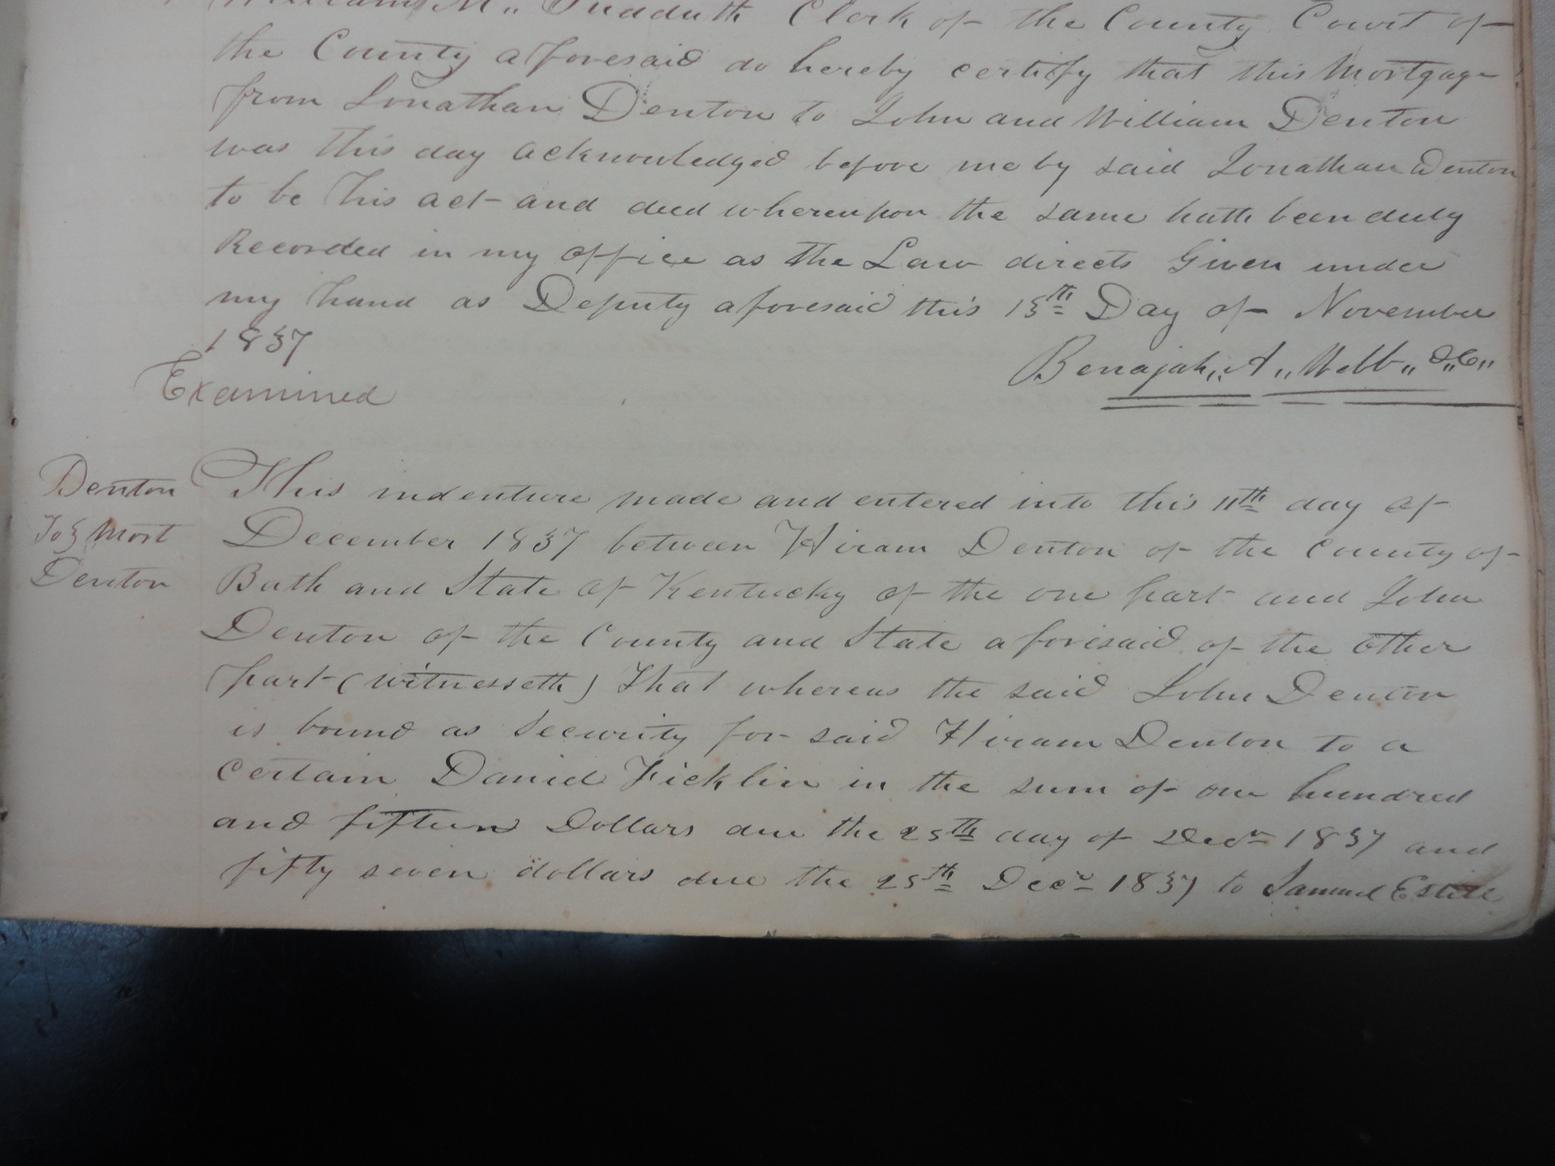 William M,, Sudduth Clerk of the County Court of
the County aforesaid do hereby certify that this Mortgage
from Jonathan Denton to John and William Denton
was this day acknowledged before me by said Jonathan Denton
to be his act and deed whereupon the same hath been duly
Recorded in my office as the Law directs Given under
my hand as Deputy aforesaid this 15th Day of November
1837
Benajah,, A,, Webb,, D,,C,,
Examined
Denton
To } Mort
Denton
This indenture made and entered into this 11th day of
December 1837 between Hiram Denton of the County of
Bath and State of Kentucky of the one part and John
Denton of the County and State aforesaid of the other
part (witnesseth) That whereas the said John Denton
is bound as Security for said Hiram Denton to a
Certain Daniel Ficklin in the sum of one hundred
and fifteen Dollars due the 25th day of Decr 1837 and
fifty seven dollars due the 25th Decr 1837 to Samuel Estill